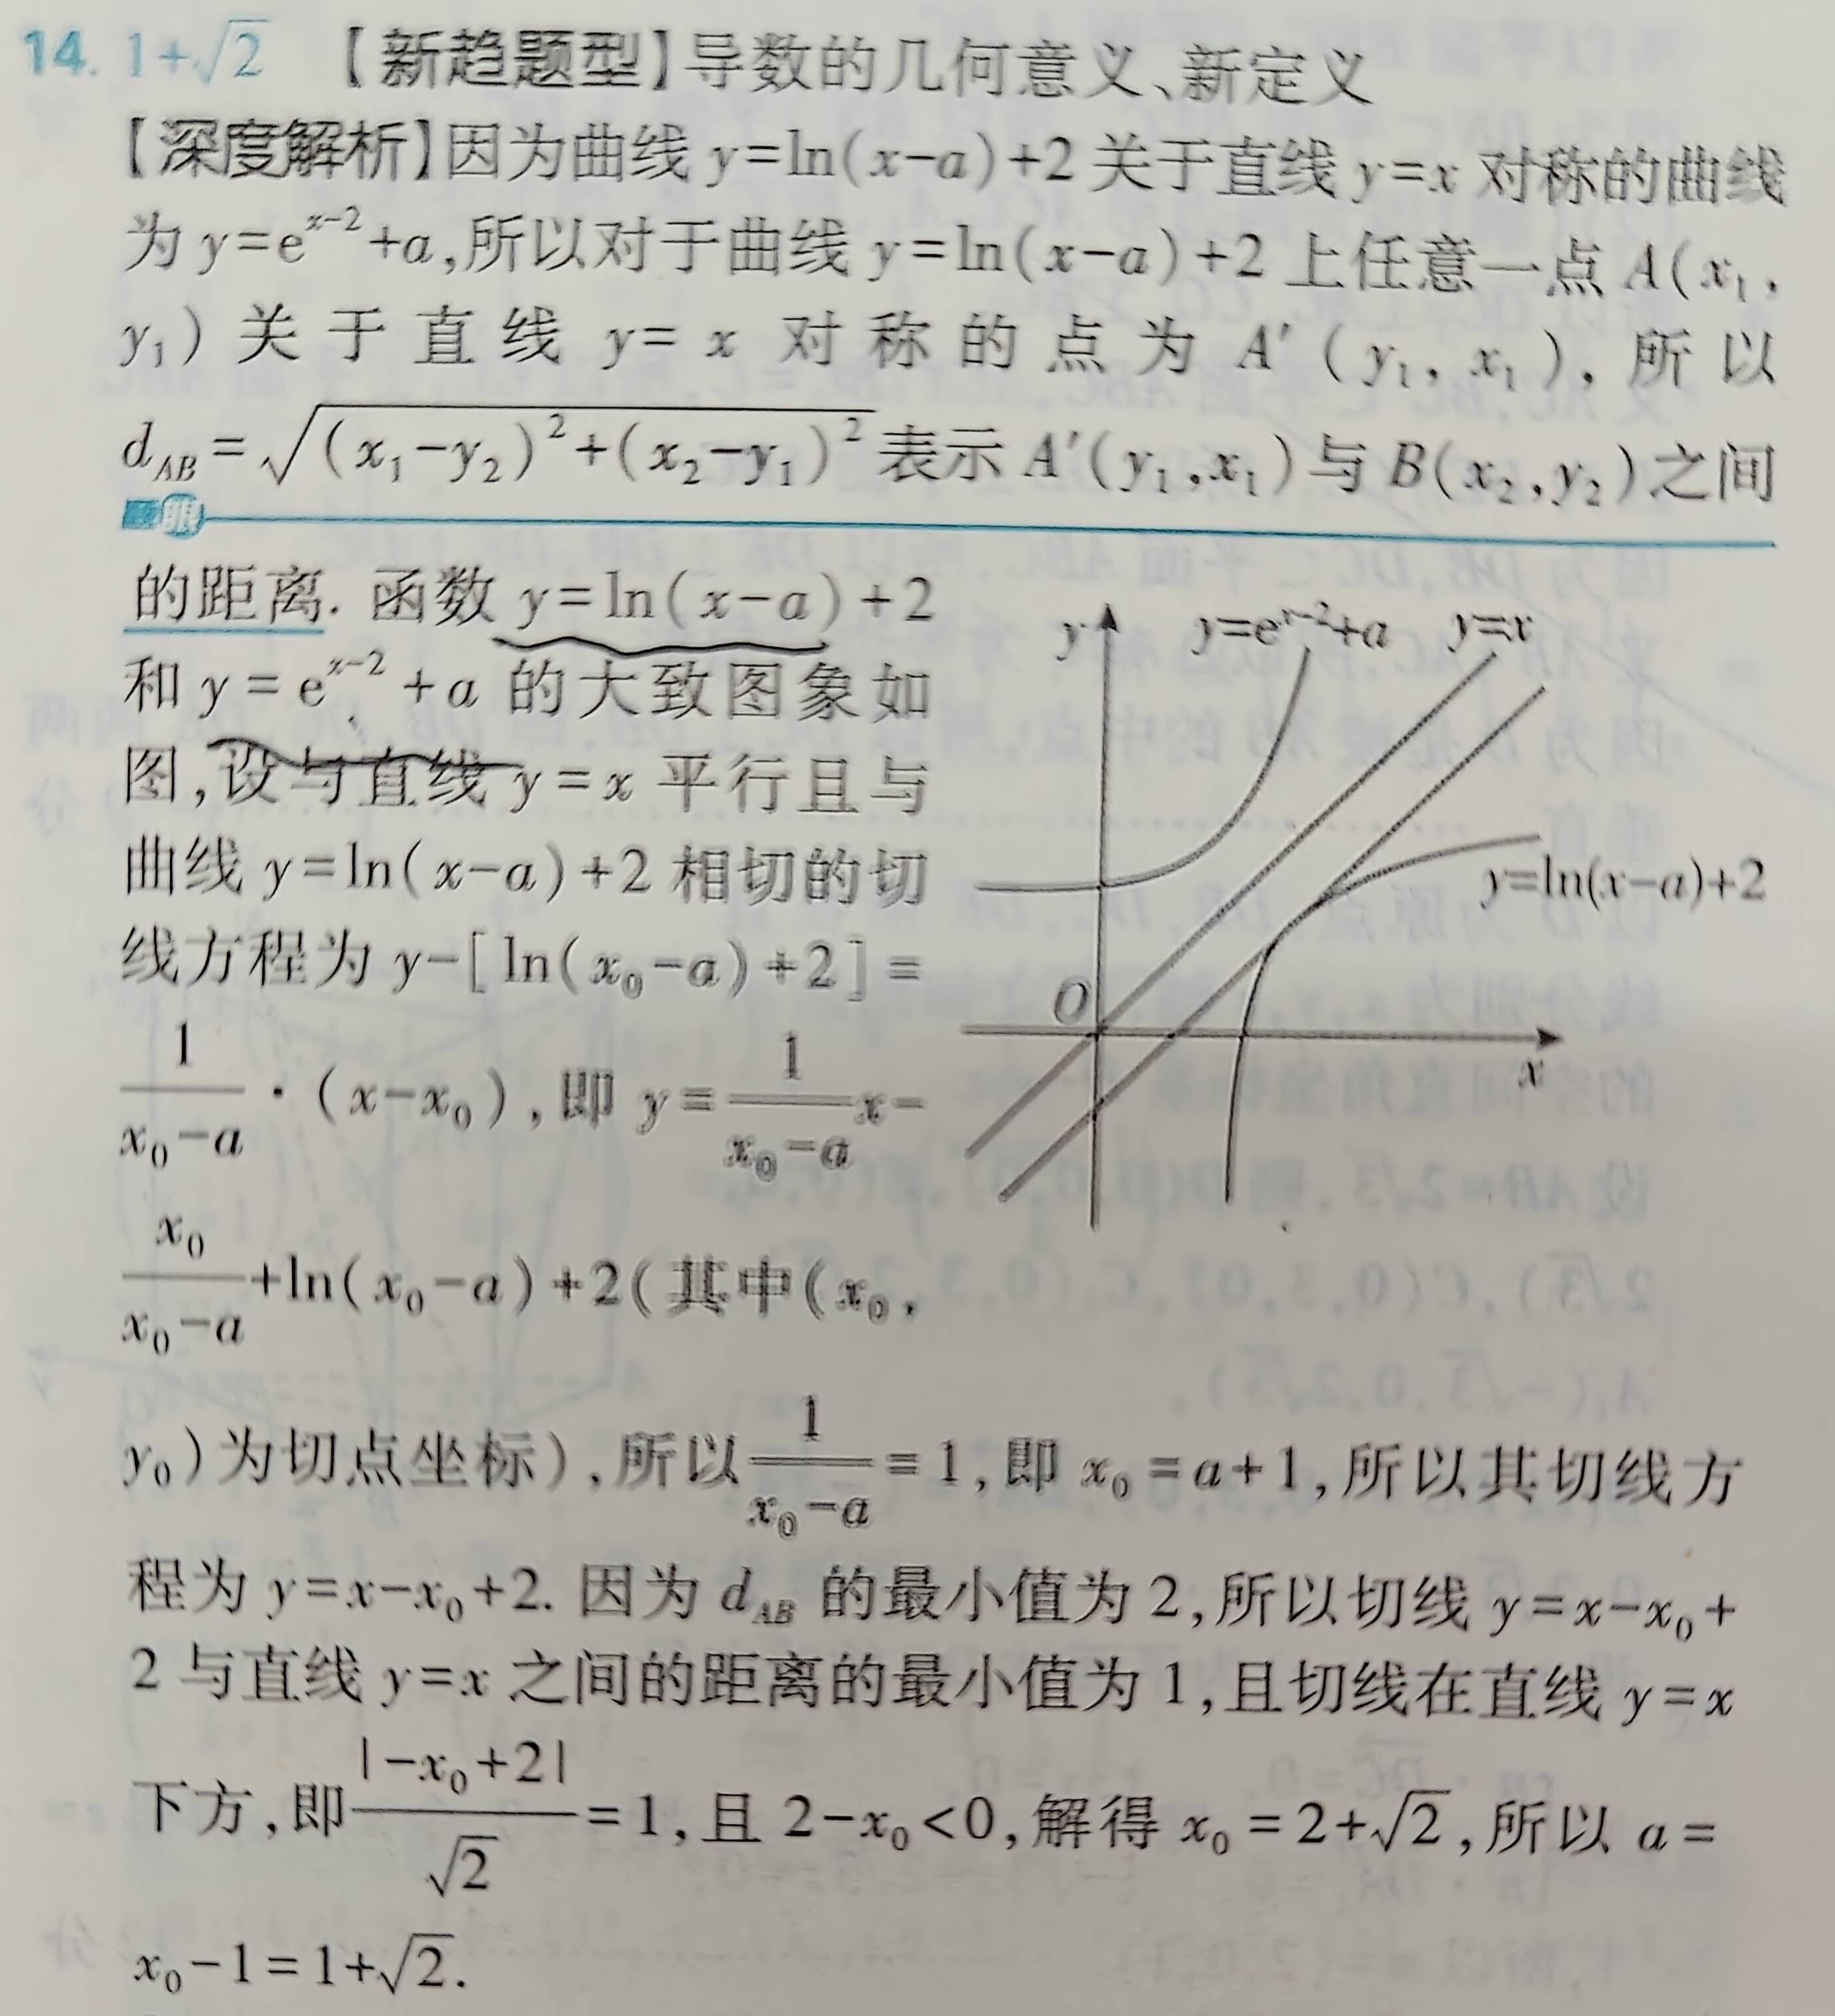 14. 1+√2 【新趋题型】导数的几何意义、新定义
【深度解析】因为曲线 y=ln(x-a)+2 关于直线 y=x 对称的曲线
为 y=e^{x-2}+a,所以对于曲线 y=ln(x-a)+2 上任意一点 A(x₁,
y₁)关于直线 y=x 对称的点为 A′(y₁,x₁),所以
d_{AB}=√((x₁-y₂)²+(x₂-y₁)²) 表示 A′(y₁,x₁)与 B(x₂,y₂)之间
题眼
的距离. 函数 y=ln(x-a)+2
和 y=e^{x-2}+a 的大致图象如
图,设与直线 y=x 平行且与
曲线 y=ln(x-a)+2 相切的切
线方程为 y-[ln(x₀-a)+2]=
1/(x₀-a)·(x-x₀),即 y=1/(x₀-a) x-
x₀/(x₀-a)+ln(x₀-a)+2(其中(x₀,
y₀)为切点坐标),所以 1/(x₀-a)=1,即 x₀=a+1,所以其切线方
程为 y=x-x₀+2. 因为 d_{AB} 的最小值为 2,所以切线 y=x-x₀+
2 与直线 y=x 之间的距离的最小值为 1,且切线在直线 y=x
下方,即 |-x₀+2|/√2=1,且 2-x₀<0,解得 x₀=2+√2,所以 a=
x₀-1=1+√2.
y
y=e^{x-2}+a
y=x
y=ln(x-a)+2
O
x